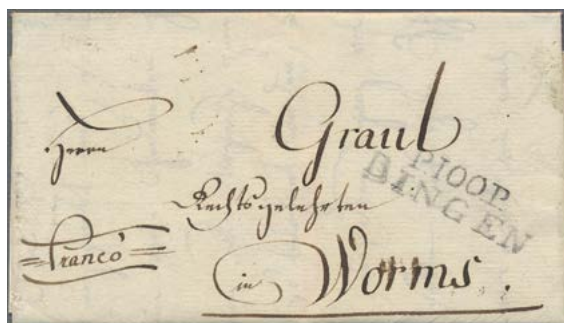 Herrn
Graul
P100P
BINGEN
Rechtsgelehrten
Franco
in Worms.